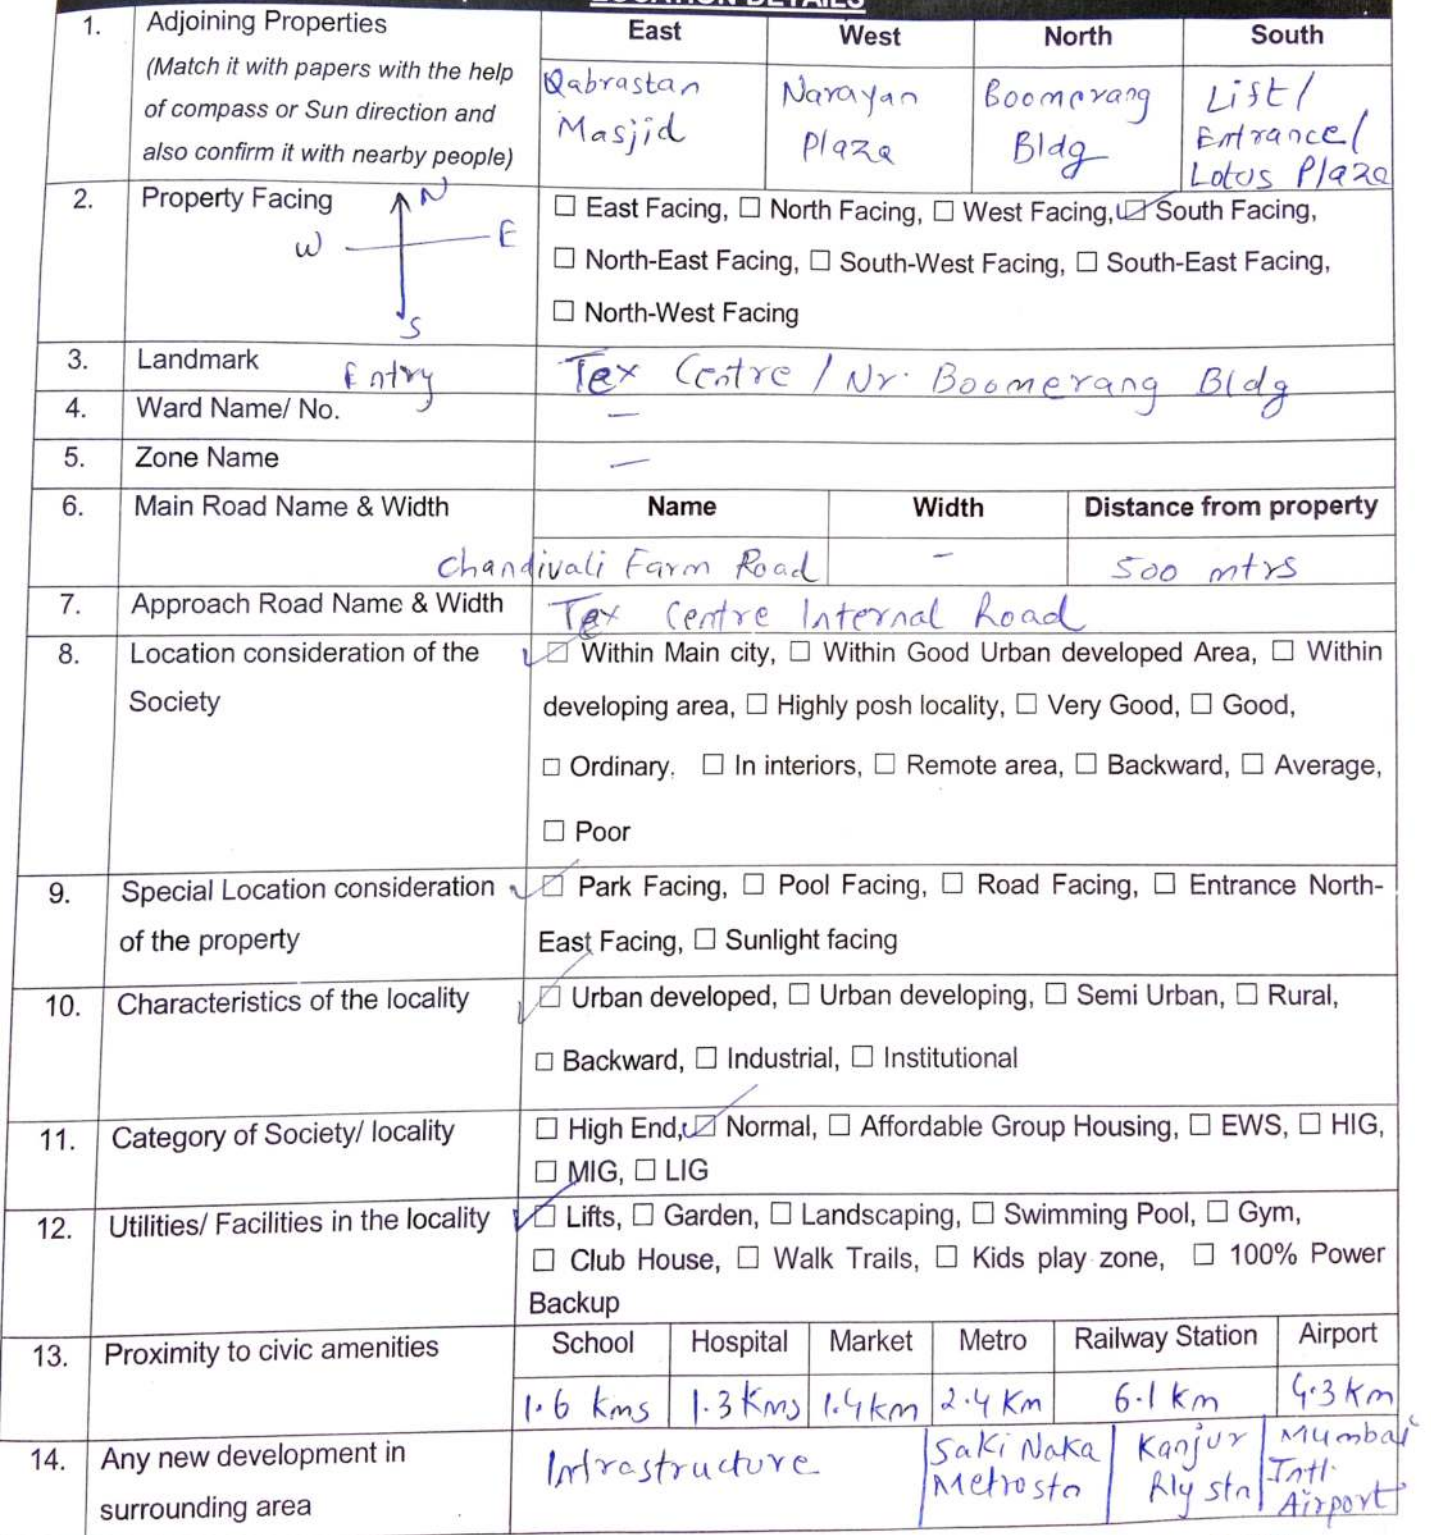 LOCATION DETAILS
1. Adjoining Properties East West North South
(Match it with papers with the help
of compass or Sun direction and
also confirm it with nearby people)
Qabrastan
Masjid
Narayan
Plaza
Boomerang
Bldg
Lift/
Entrance/
Lotus Plaza
2. Property Facing
N
W E
S
Entry
☐ East Facing, ☐ North Facing, ☐ West Facing, ☑ South Facing,
☐ North-East Facing, ☐ South-West Facing, ☐ South-East Facing,
☐ North-West Facing
3. Landmark Tex Centre / Nr. Boomerang Bldg
4. Ward Name/ No. —
5. Zone Name —
6. Main Road Name & Width Name Width Distance from property
Chandivali Farm Road - 500 mtrs
7. Approach Road Name & Width Tex Centre Internal Road
8. Location consideration of the
Society
☑ Within Main city, ☐ Within Good Urban developed Area, ☐ Within
developing area, ☐ Highly posh locality, ☐ Very Good, ☐ Good,
☐ Ordinary. ☐ In interiors, ☐ Remote area, ☐ Backward, ☐ Average,
☐ Poor
9. Special Location consideration
of the property
☑ Park Facing, ☐ Pool Facing, ☐ Road Facing, ☐ Entrance North-
East Facing, ☐ Sunlight facing
10. Characteristics of the locality
☑ Urban developed, ☐ Urban developing, ☐ Semi Urban, ☐ Rural,
☐ Backward, ☐ Industrial, ☐ Institutional
11. Category of Society/ locality
☐ High End, ☑ Normal, ☐ Affordable Group Housing, ☐ EWS, ☐ HIG,
☐ MIG, ☐ LIG
12. Utilities/ Facilities in the locality
☑ Lifts, ☐ Garden, ☐ Landscaping, ☐ Swimming Pool, ☐ Gym,
☐ Club House, ☐ Walk Trails, ☐ Kids play zone, ☐ 100% Power
Backup
13. Proximity to civic amenities School Hospital Market Metro Railway Station Airport
1.6 kms 1.3 Kms 1.4 km 2.4 Km 6.1 km 4.3 Km
14. Any new development in
surrounding area
Infrastructure
Saki Naka
Metro stn
Kanjur
Rly stn
Mumbai
Intl.
Airport